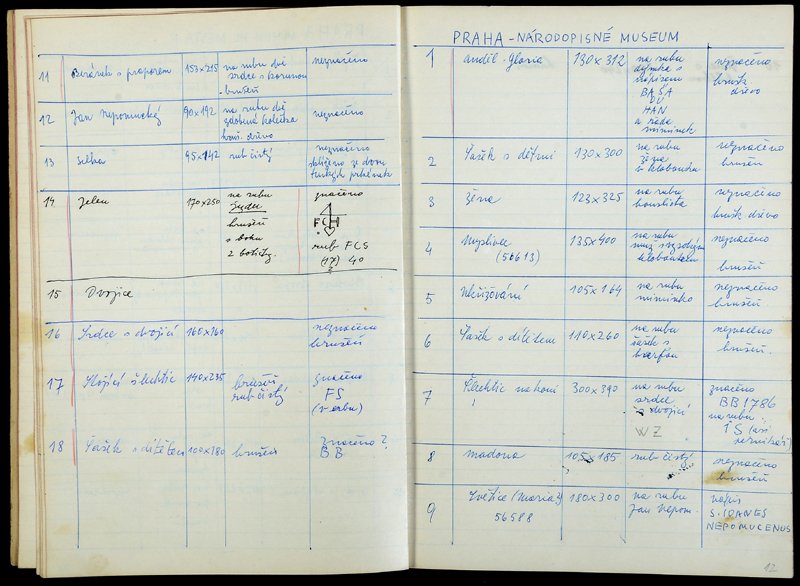 11 Beránek s praporem 153x215 na rubu dvě
srdce s korunou
bruseń
neznačeno
12 Jan Nepomucký 90x192 na rubu dvě
kolečka
dřevo
neznačeno
13 selka 95x142 rub čistý neznačeno
14 Jelen 170x250 na rubu
srdce
bruseń
s boku
značeno
FCH
rub FCS
40
15 Dvojice
16 Srdce s dvojicí 160x160 neznačeno
bruseń
17 Stojící šlechtic 140x235 bruseń
rub čistý
značeno
FS
(v erbu)
18 Šašek s dítětem 100x180 bruseń
značeno?
BB
PRAHA - NÁRODOPISNÉ MUSEUM
1 anděl - Gloria 130x312 na rubu
s
nápisem
BAŠA
DU
HAN
a řada
miminek
neznačeno
hrušk
dřevo
2 Šašek s dětmi 130x300 na rubu
žena
v klobouku
neznačeno
bruseń
3 žena 123x325 na rubu
houslista
neznačeno
hrušk dřevo
4 Myslivec
(50613)
135x400 na rubu
muž s
kloboukem
neznačeno
bruseń
5 Ukřižování 105x164 na rubu
miminko
neznačeno
bruseń
6 Šašek s dítětem 110x260 na rubu
šašek s
harfou
neznačeno
bruseń.
7 Šlechtic na koni 300x390 na rubu
srdce
s dvojicí
WZ
značeno
BB 1786
na rubu
IS (asi
pernikář)
8 madona 105x185 rub čistý neznačeno
bruseń
9 Světice (Maria?)
56588
180x300 na rubu
Jan Nepom.
nápis
S. IOANES
NEPOMUCENUS
12